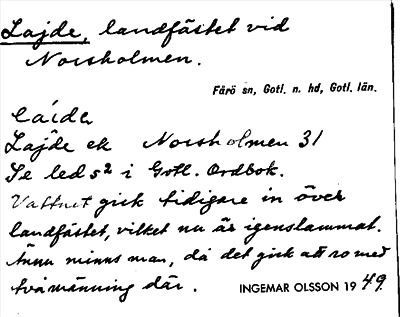 Lajde, landfästet vid
Norsholmen.
Fårö sn, Gotl. n. hd, Gotl. län.
Lajde ek Norsholmen 31
Se led s² i Gotl. Ordbok.
Vattnet gick tidigare in över
landfästet, vilket nu är igenslammat.
Ännu minns man, då det gick att ro med
tvåmänning där.
INGEMAR OLSSON 1949.